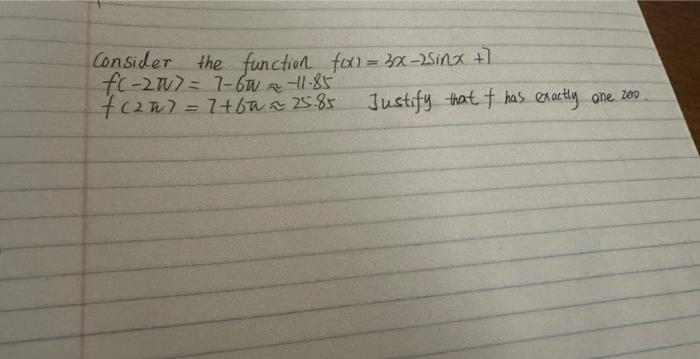 Consider the function f(x) = 3x - 2sinx + 7
f(-2π) = 7-6π ≈ -11.85
f(2π) = 7+6π ≈ 25.85 Justify that f has exactly one zero.